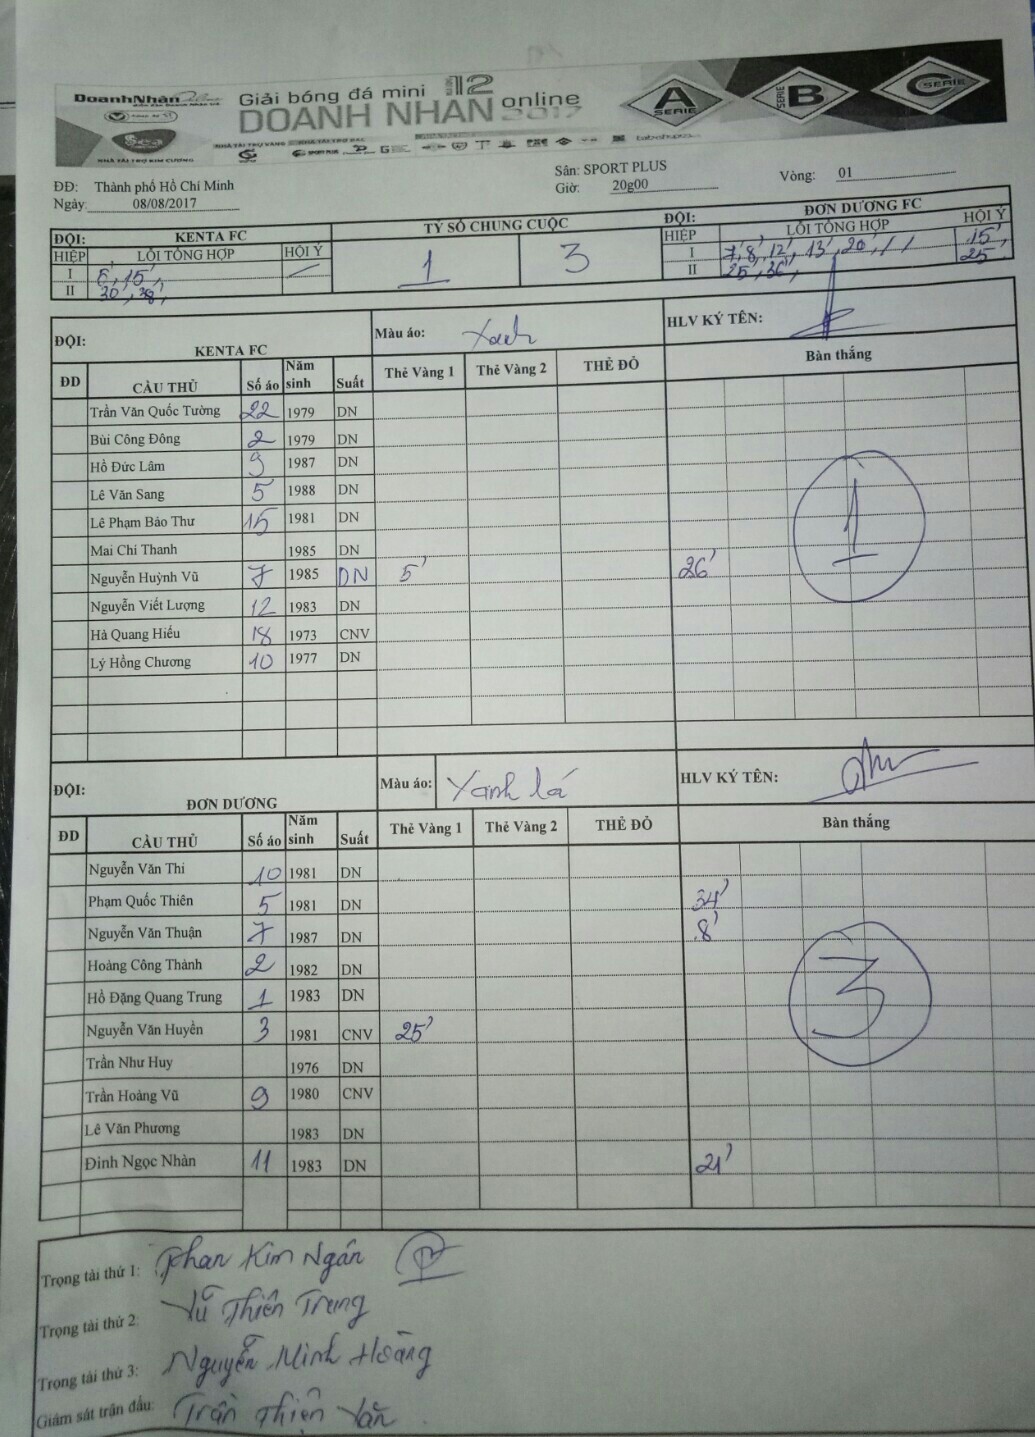 DoanhNhân
Giải bóng đá mini 12
DOANH NHAN online 2017
A SERIE
B SERIE
C SERIE
NHÀ TÀI TRỢ KIM CƯƠNG
NHÀ TÀI TRỢ VÀNG
ĐĐ: Thành phố Hồ Chí Minh Sân: SPORT PLUS Vòng: 01
Ngày: 08/08/2017 Giờ: 20g00
ĐỘI: KENTA FC TỶ SỐ CHUNG CUỘC ĐỘI: ĐƠN DƯƠNG FC
HIỆP LỖI TỔNG HỢP HỘI Ý 1 3 HIỆP LỖI TỔNG HỢP HỘI Ý
I 15', I 7', 8', 12', 13', 20', / / 15'
II 30', 38', II 25', 36', 25
ĐỘI: KENTA FC Màu áo: Xanh HLV KÝ TÊN:
ĐD CẦU THỦ Số áo Năm sinh Suất Thẻ Vàng 1 Thẻ Vàng 2 THẺ ĐỎ Bàn thắng
Trần Văn Quốc Tường 22 1979 DN
Bùi Công Đông 2 1979 DN
Hồ Đức Lâm 9 1987 DN
Lê Văn Sang 5 1988 DN
Lê Phạm Bảo Thư 15 1981 DN 1
Mai Chí Thanh 1985 DN
Nguyễn Huỳnh Vũ 7 1985 DN 5' 26'
Nguyễn Viết Lượng 12 1983 DN
Hà Quang Hiếu 18 1973 CNV
Lý Hồng Chương 10 1977 DN
ĐỘI: ĐƠN DƯƠNG Màu áo: Xanh lá HLV KÝ TÊN:
ĐD CẦU THỦ Số áo Năm sinh Suất Thẻ Vàng 1 Thẻ Vàng 2 THẺ ĐỎ Bàn thắng
Nguyễn Văn Thi 10 1981 DN
Phạm Quốc Thiên 5 1981 DN 34'
Nguyễn Văn Thuận 7 1987 DN 8'
Hoàng Công Thành 2 1982 DN 3
Hồ Đặng Quang Trung 1 1983 DN
Nguyễn Văn Huyền 3 1981 CNV 25'
Trần Như Huy 1976 DN
Trần Hoàng Vũ 9 1980 CNV
Lê Văn Phương 1983 DN
Đinh Ngọc Nhàn 11 1983 DN 21'
Trọng tài thứ 1: Phan Kim Ngân
Trọng tài thứ 2: Vũ Thiên Trung
Trọng tài thứ 3: Nguyễn Minh Hoàng
Giám sát trận đấu: Trần Thiện Văn